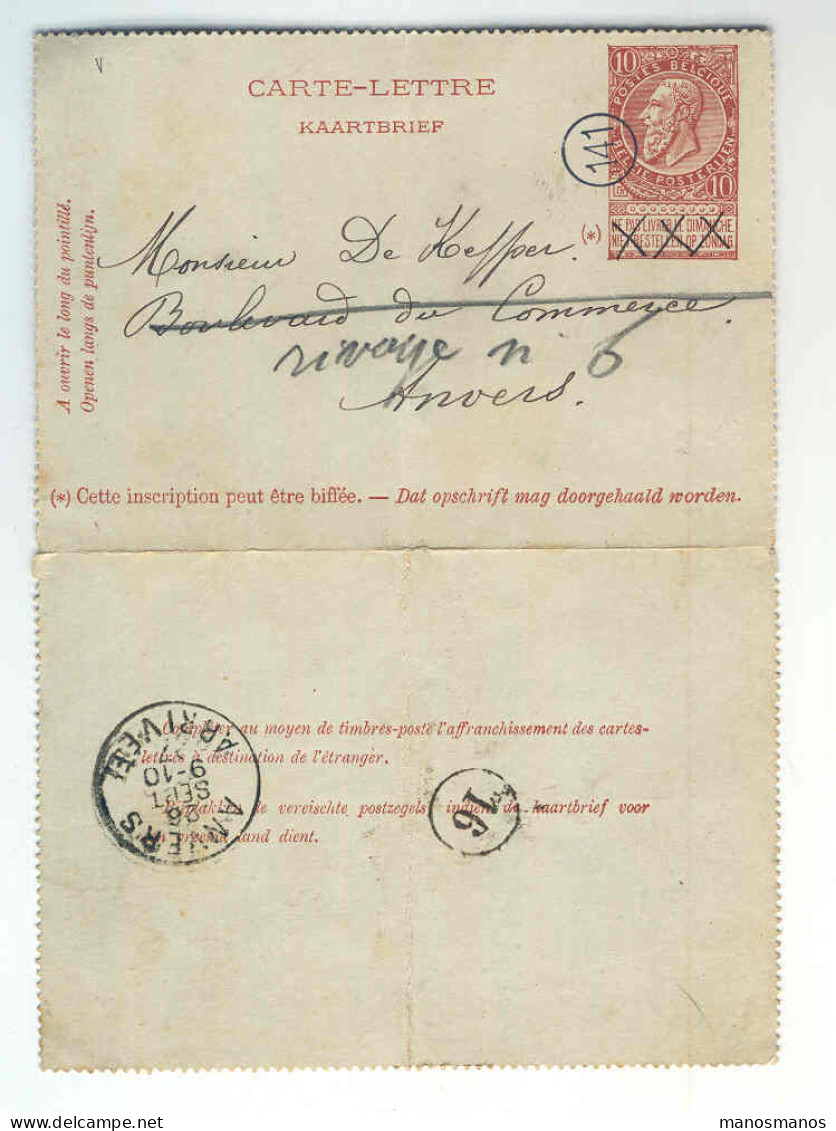 CARTE-LETTRE
KAARTBRIEF
10
POSTES BELGIQUE
BELGIE POSTERIJEN
10
141
(*)
NE PAS LIVRER LE DIMANCHE
NIET BESTELLEN OP ZONDAG
A ouvrir le long du pointillé.
Openen langs de puntenlijn.
Monsieur De Kepper.
Boulevard du Commerce.
rivage n 6
Anvers.
(*) Cette inscription peut être biffée. — Dat opschrift mag doorgehaald worden.
Compléter au moyen de timbres-poste l'affranchissement des cartes-
lettres à destination de l'étranger.
Bijplakken de vereischte postzegels indien de kaartbrief voor
vreemd land dient.
ANVERS
26
SEPT.
9-10
ARRIVÉE
16
manosmanos